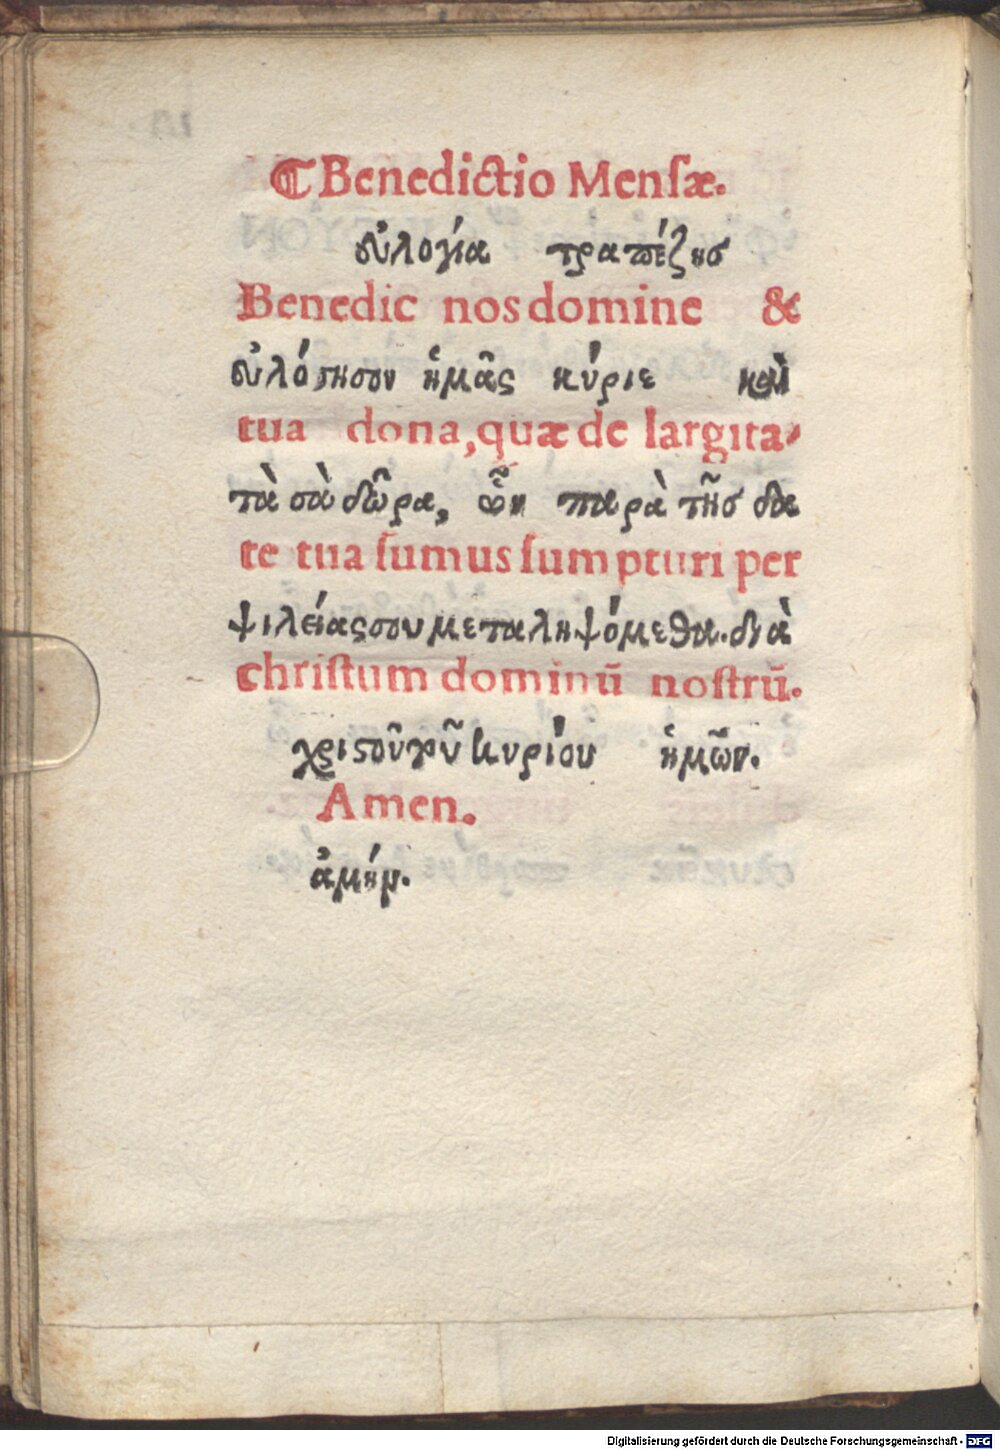 ¶ Benedictio Mensæ.
εὐλογία τραπέζης
Benedic nos domine &
εὐλόγησον ἡμᾶς κύριε καὶ
tua dona, quæ de largita-
τὰ σὰ δῶρα, ὧν παρὰ τῆς δα
te tua sumus sumpturi per
ψιλείας σου μεταληψόμεθα. διὰ
christum dominū nostrū.
χριστοῦ τοῦ κυρίου ἡμῶν.
Amen.
ἀμήν.
Digitalisierung gefördert durch die Deutsche Forschungsgemeinschaft - DFG